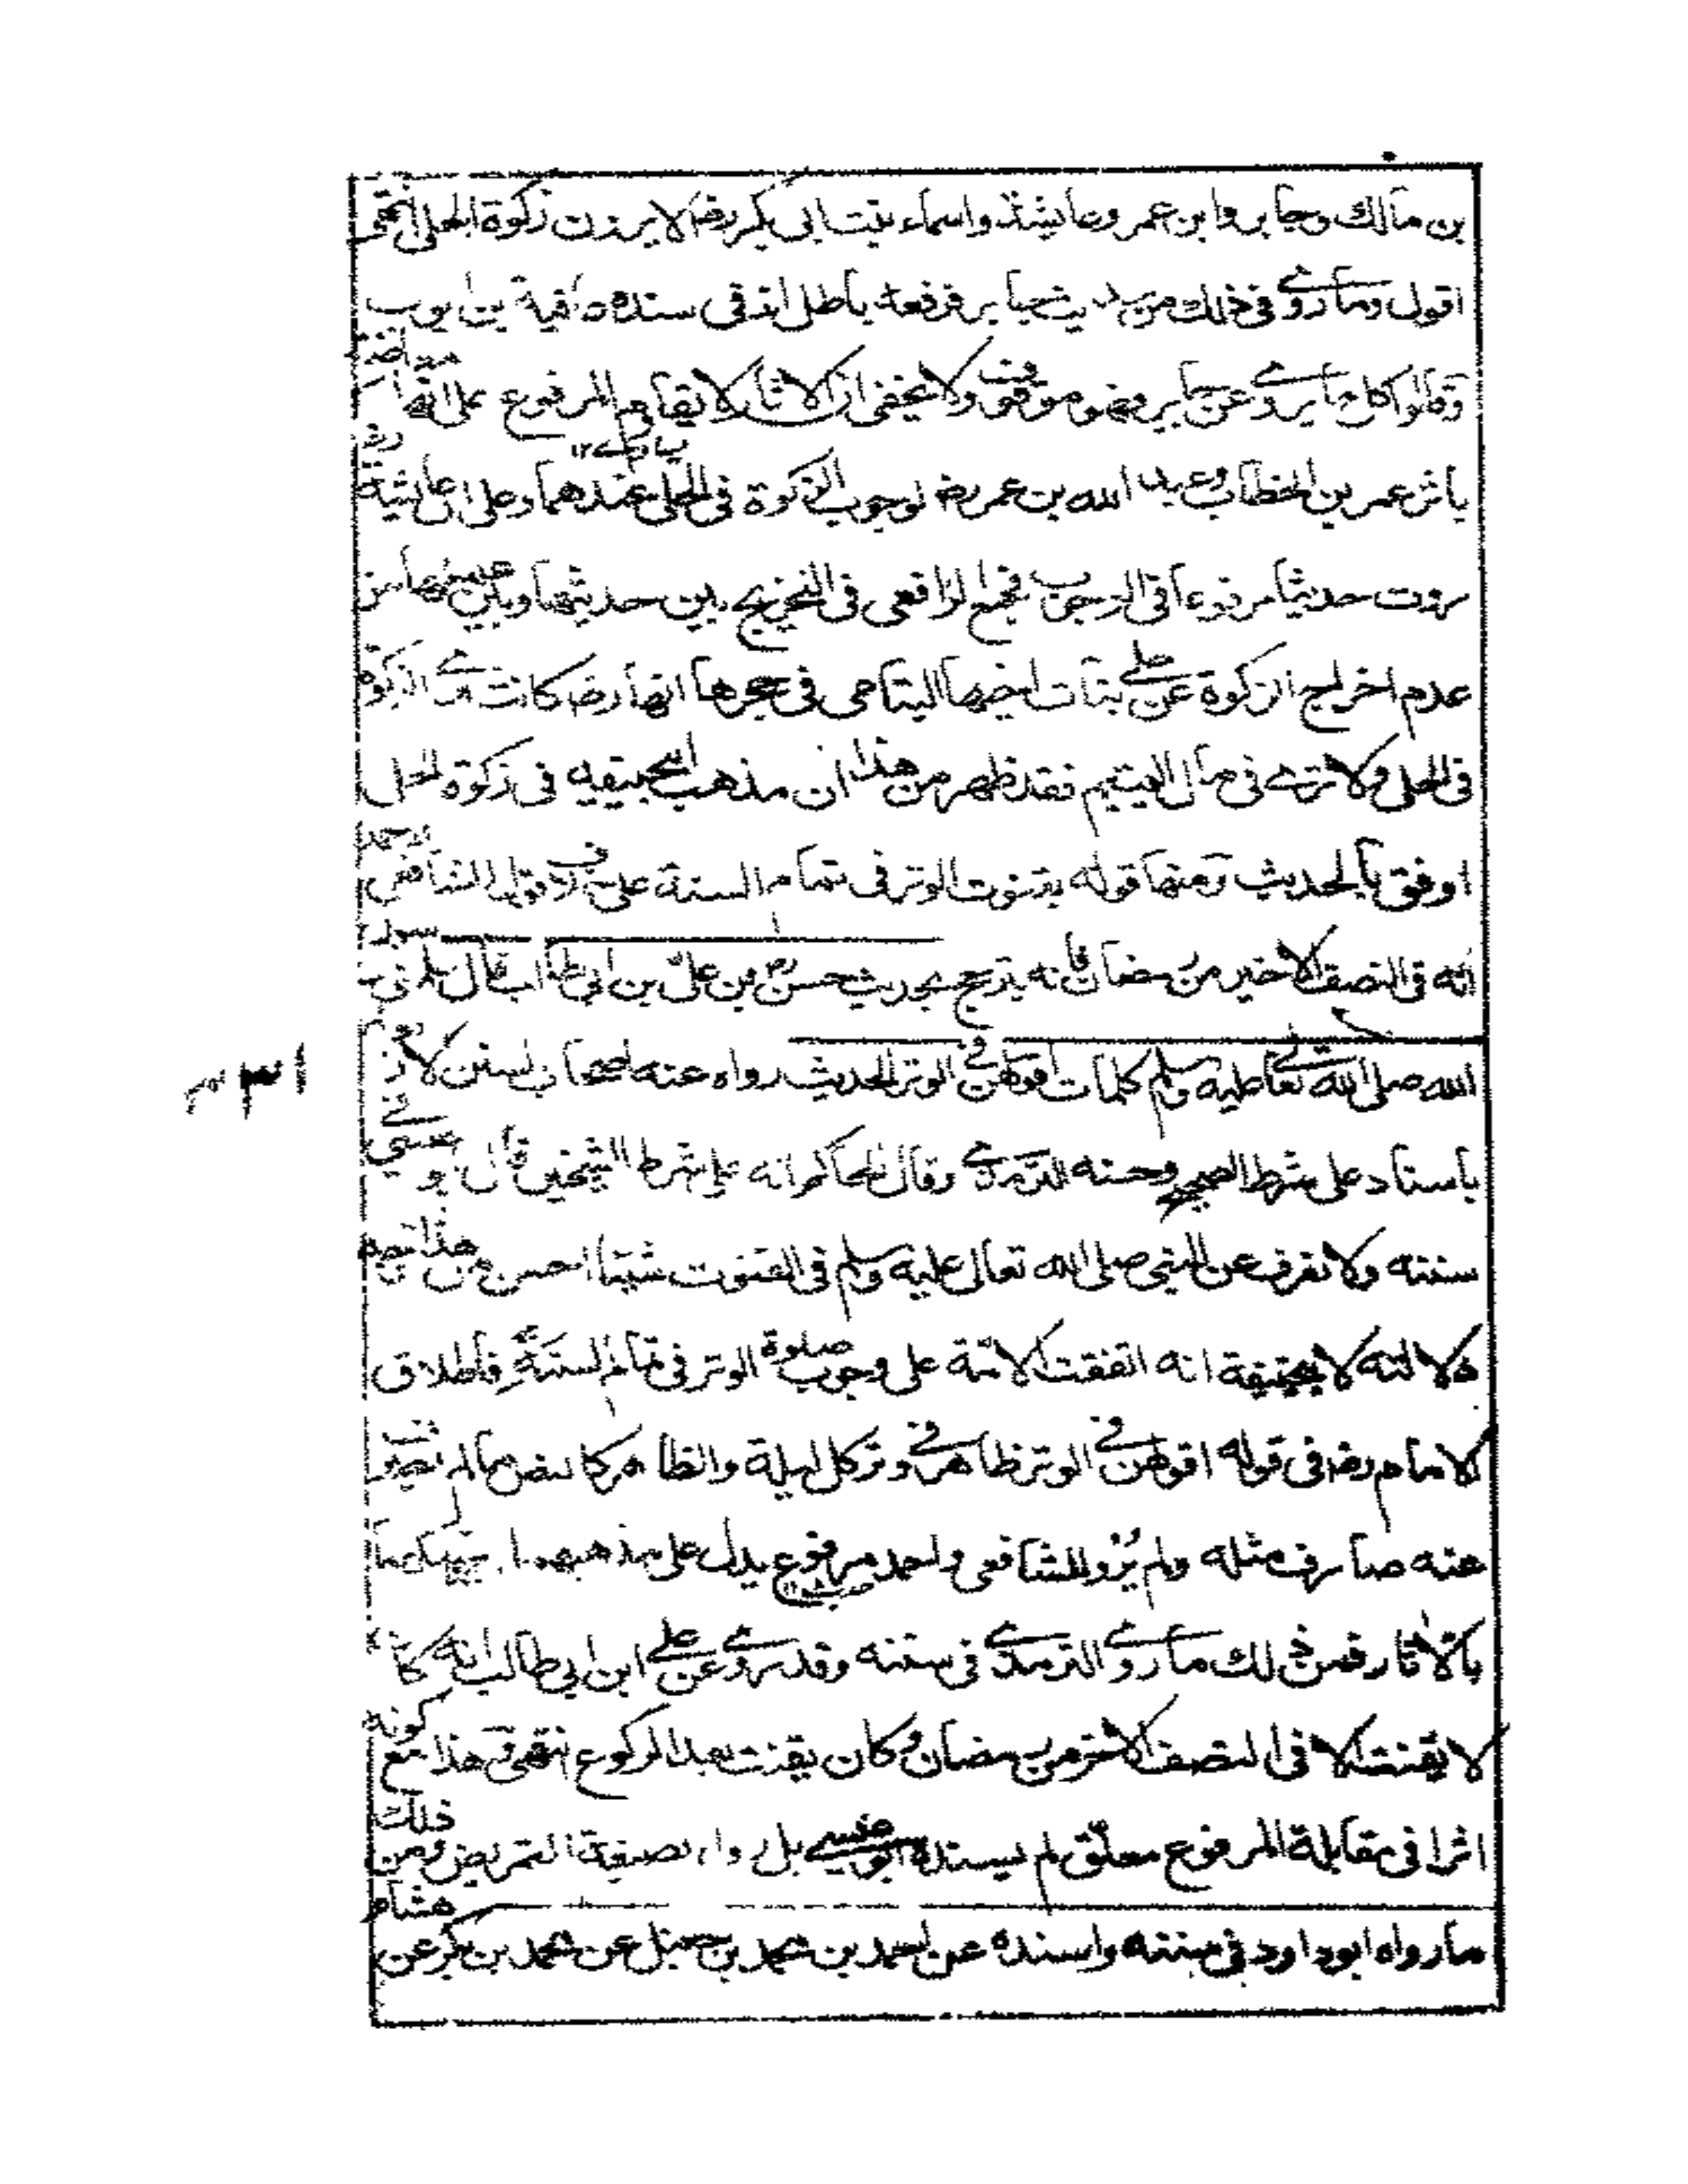 بن مالك وجابر وابن عمر وعايشة واسماء بنت ابى بكر رضـ لا يرون زكوة الحلى انتهى
اقول وما روى فى ذلك من حديث جابر فرفعه باطل اذ فى سنده عافية بن ايوب
وقالوا كل ما يروى عن جابر فهو موقوف ولا يخفى ان الاثار لا يقاوم المرفوع على انه معارضة
باثر عمر بن الخطاب وعبد الله بن عمر رضـ لوجوب الزكوة فى الحلى عندهما وعلى ان عايشة رضـ
روت حديثا مرفوعا فى الوجوب فجمع الرافعى فى التخريج بين حديثها وبين عملها من
عدم اخراج الزكوة عن حلى بنات اخيها اليتامى فى حجرها انها رضـ كانت ترى الزكوة
فى الحلى ولا ترى فى مال اليتيم فقد ظهر من هذا ان مذهب ابيحنيفه فى زكوة الحلى
اوفق بالحديث ومنها قوله بقنوت الوتر فى تمام السنة على خلاف قول الشافعى واحمد
انه فى النصف الاخير من رمضان فانه يترجح بحديث حسن رضـ بن على بن ابى طالب قال علمنى رسول
الله صلى الله تعالى عليه وسلم كلمات اقولهن فى الوتر الحديث رواه عنه اصحاب السنن الاربع
باسناد على شرط الصحيح وحسنه الترمذى وقال الحاكم انه على شرط الشيخين قال ابو عيسى فى
سننه ولا نعرف عن النبى صلى الله تعالى عليه وسلم فى القنوت شيئا احسن من هذا وجه
دلالته لابيحنيفة انه اتفقت الائمة على وجوب صلوة الوتر فى تمام السنة فاطلاق
الامام رضـ فى قوله اقولهن فى الوتر ظاهر فى وتر كل ليلة والظاهر كالنص ما لم يصرف
عنه صارف مثله ولم يُرو للشافعى واحمد مرفوع يدل على مذهبهما
بالاثار فمن ذلك ما روى الترمذى فى سننه وقد روى عن على ابن ابى طالب انه كان
لا يقنت الا فى النصف الاخر من رمضان وكان يقنت بعد الركوع انتهى وهذا مع كونه
اثرا فى مقابلة المرفوع معلّق لم يسنده ابو عيسى بل رواه بصيغة التمريض ومن ذلك
ما رواه ابو داود فى سننه واسنده عن احمد بن محمد بن حنبل عن محمد بن بكر عن هشام